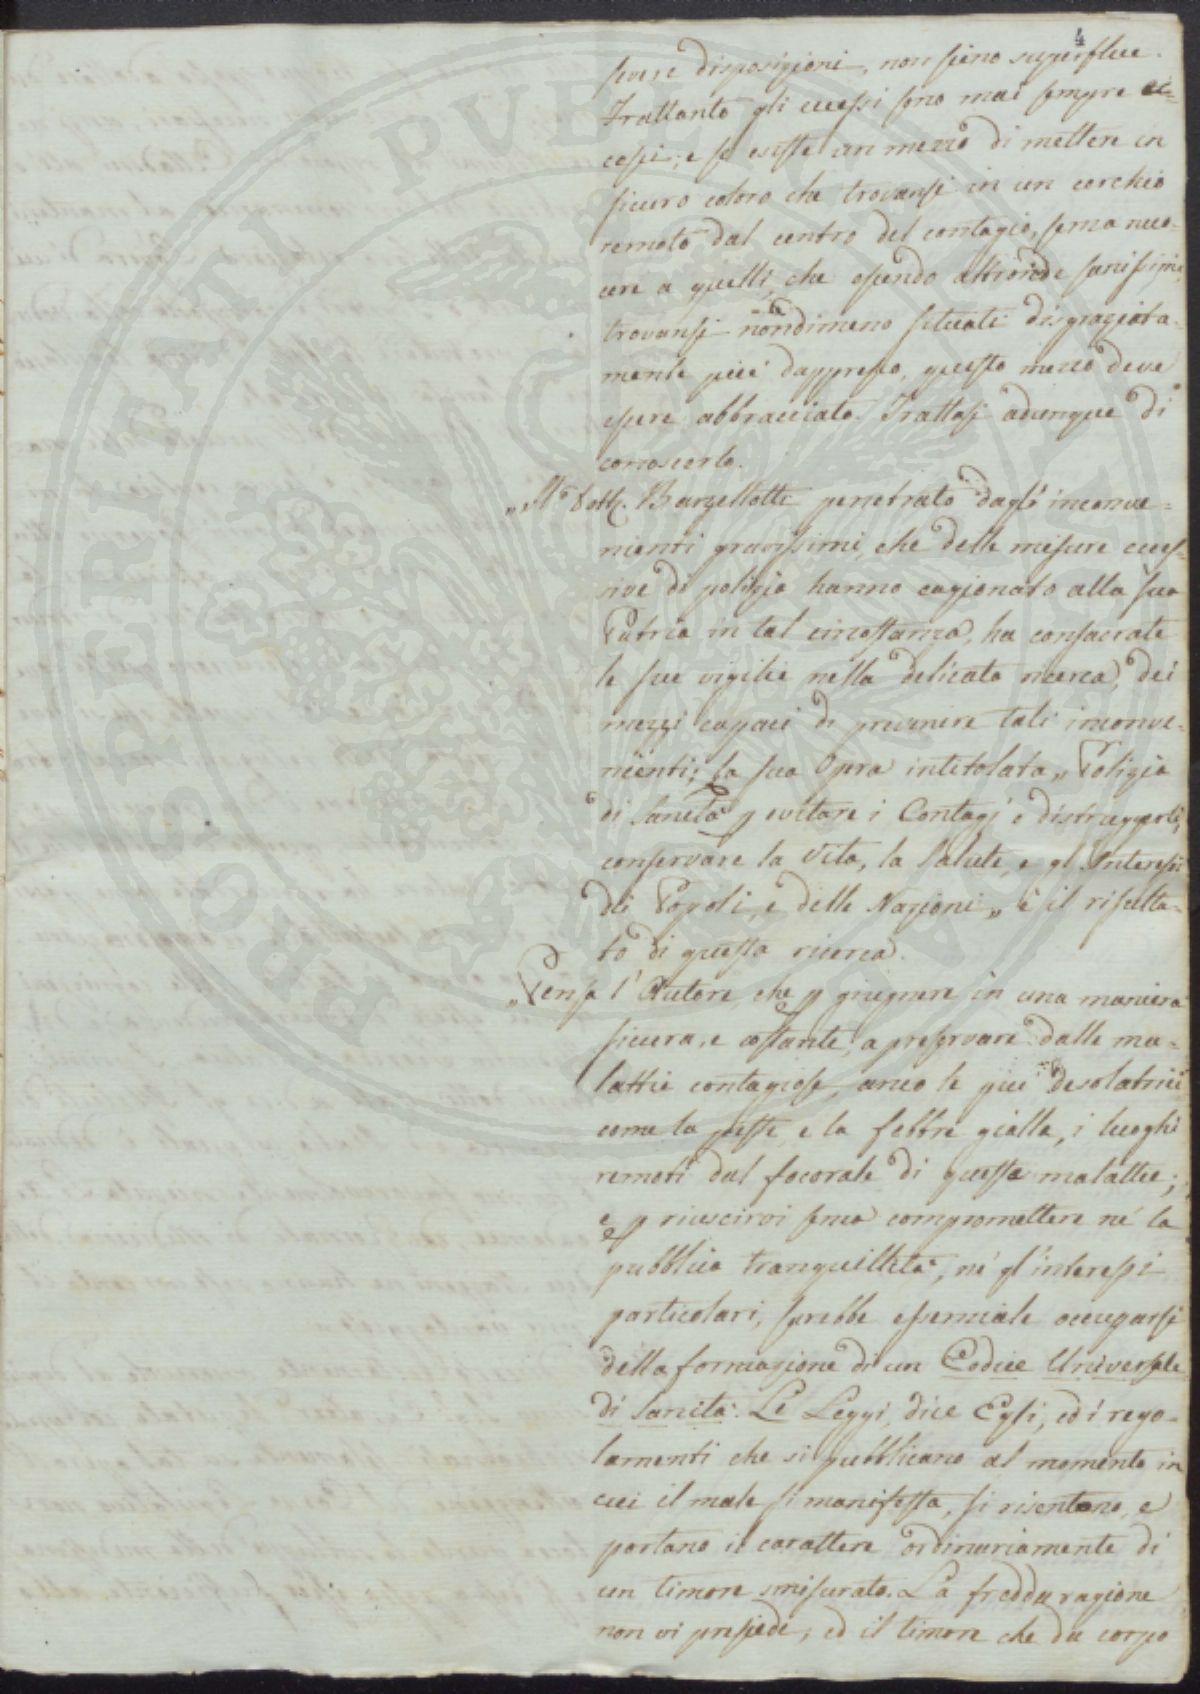 4
severe disposizioni, non sieno superflue.
Frattanto gli eccessi sono mai sempre ec-
cessi; e se esiste un mezzo di mettere in
sicuro coloro che trovansi in un cerchio
remoto dal centro del contagio, senza nuo-
cere a quelli, che essendo altronde sanissimi,
trovansi nondimeno situati disgraziata-
mente più dappresso, questo mezzo deve
essere abbracciato. Trattasi adunque di
conoscerlo.
„ Il Dott. Barzellotti penetrato dagl'inconve-
nienti gravissimi, che delle misure ecces-
sive di polizia hanno cagionato alla sua
Patria in tal circostanza, ha consacrate
le sue vigilie nella delicata ricerca, dei
mezzi capaci di prevenire tali inconve-
nienti; la sua Opra intitolata „ Polizia
di Sanità p evitare i Contagj e distruggerli,
conservare la Vita, la Salute, e gl'Interessi
dei Popoli, e delle Nazioni „ è il risulta-
to di questa ricerca.
„ Pensa l'Autore che p giugnere in una maniera
sicura, e costante, a preservare dalle ma-
lattie contagiose, anco le più desolatrici
come la peste, e la febbre gialla, i luoghi
remoti dal focorale di queste malattie;
e p riuscirvi senza compromettere nè la
pubblica tranquillità, nè gl'interessi
particolari, sarebbe essenziale occuparsi
della formazione di un Codice Universale
di Sanità. Le Leggi, dice Egli, ed i rego-
lamenti che si pubblicano al momento in
cui il male si manifesta, si risentono, e
portano il carattere ordinariamente di
un timore smisurato. La fredda ragione
non vi presiede; ed il timore che da corpo
PROSPERITATI PVBLICAE